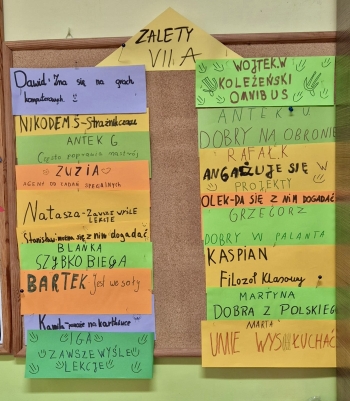 ZALETY
VII.A
Dawid: Zna się na grach
komputerowych
NIKODEM Ś-Strażnik czasu
ANTEK G
Często poprawia nastrój
ZUZIA
AGENT DO ZADAŃ SPECJALNYCH
Natasza-Zawsze wyśle
LEKCJE
Stanisław-można się z nim dogadać
BLANKA
SZYBKO BIEGA
BARTEK jest wesoły
Kamila-
na kartkówce
IGA
ZAWSZE WYŚLE
LEKCJE
WOJTEK.W
KOLEŻEŃSKI
OMNIBUS
ANTEK U
DOBRY NA OBRONIE
RAFAŁ.K
ANGAŻUJE SIĘ
PROJEKTY
OLEK-DA SIĘ Z NIM DOGADAĆ
GRZEGORZ
DOBRY W PALANTA
KASPIAN
Filozof Klasowy
MARTYNA
DOBRA Z POLSKIEGO
MARTA
UMIE WYSŁUCHAĆ